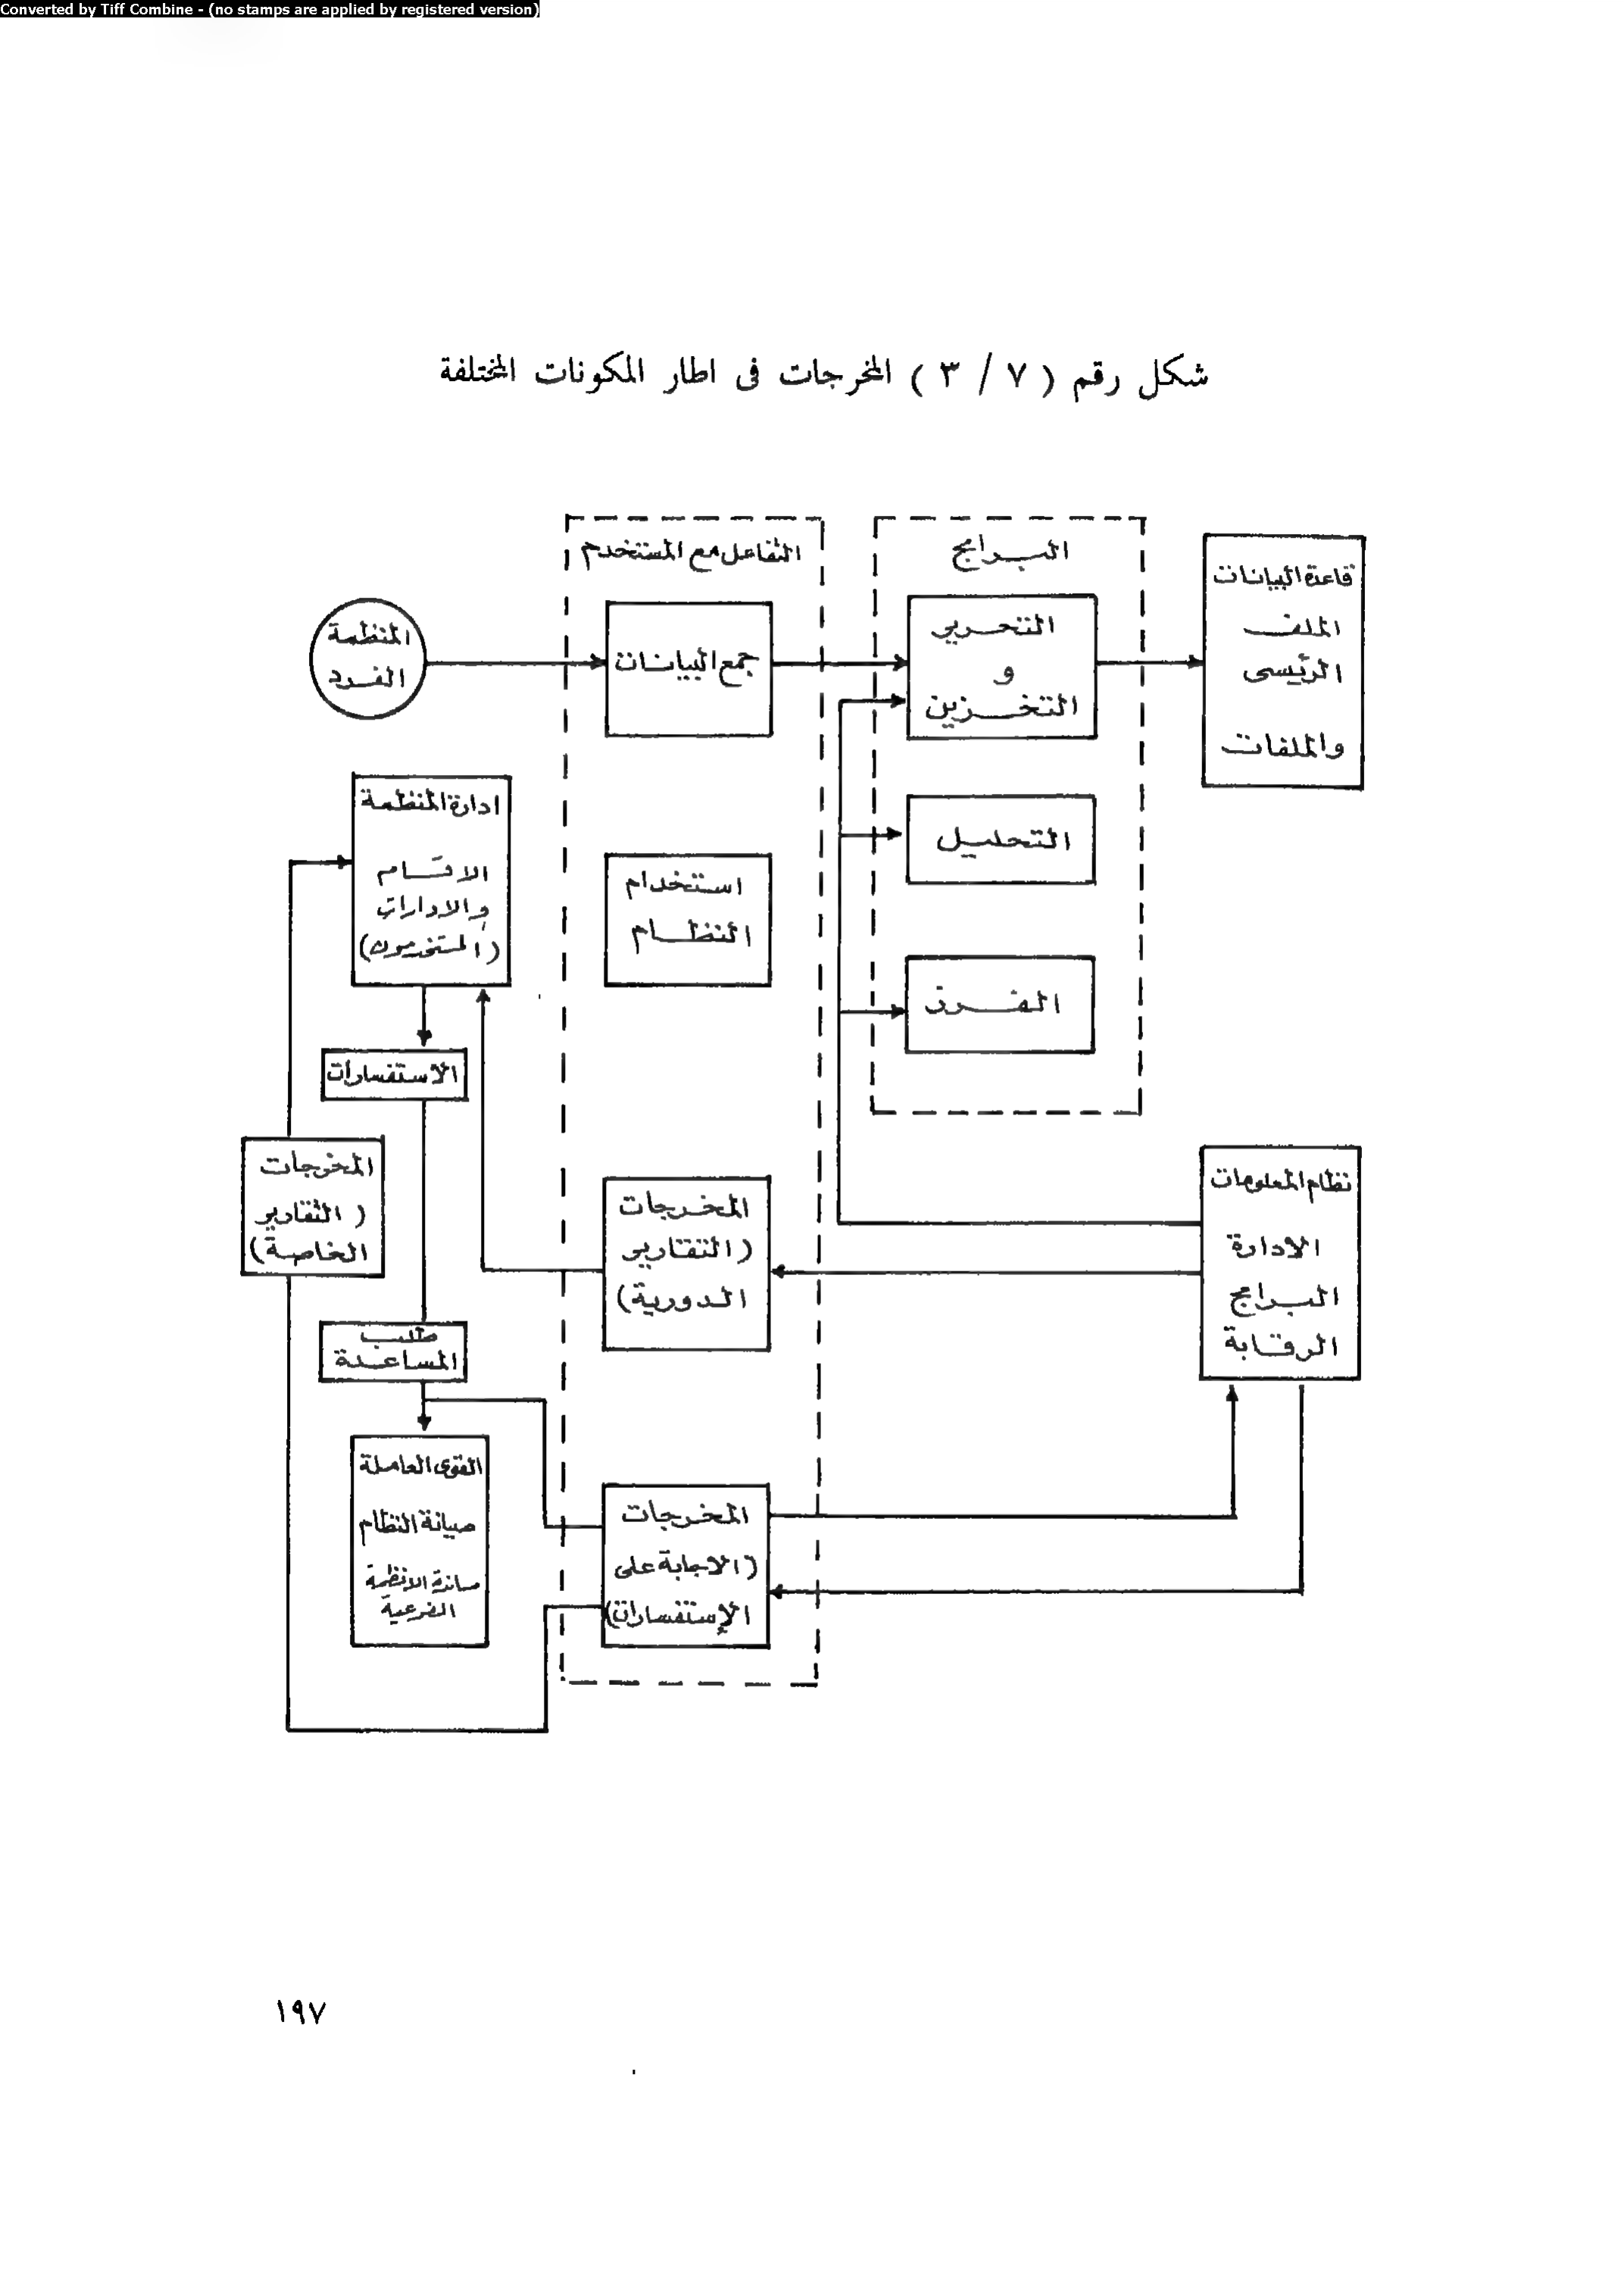 Converted by Tiff Combine - (no stamps are applied by registered version)
شكل رقم ( ٧ / ٣ ) المخرجات فى اطار المكونات المختلفة
التفاعل مع المستخدم
البرامج
قاعدة البيانات
الملف
الرئيسى
والملفات
المنظمة
الفرد
جمع البيانات
التحرير
و
التخزين
ادارة المنظمة
الاقسام
والادارات
(المستخدمون)
استخدام
النظام
التحليل
الفرز
الاستفسارات
المخرجات
(التقارير
الخاصة)
المخرجات
(التقارير
الدورية)
نظام المعلومات
الادارة
البرامج
الرقابة
طلب
المساعدة
القوى العاملة
صيانة النظام
مساندة الانظمة
الفرعية
المخرجات
(الاجابة على
الإستفسارات)
١٩٧